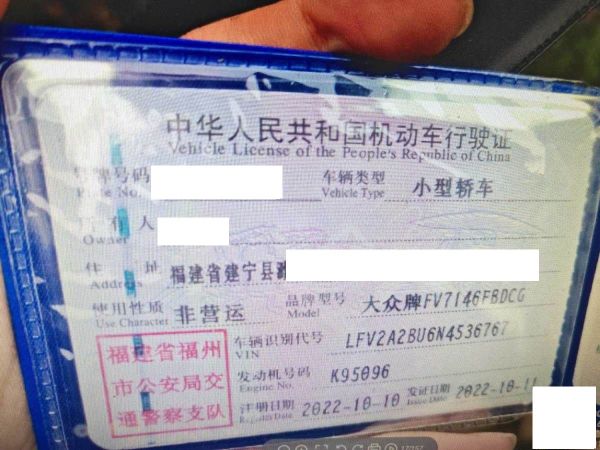 中华人民共和国机动车行驶证
Vehicle License of the People's Republic of China
号牌号码
Plate No.
车辆类型 小型轿车
Vehicle Type
所有人
Owner
住 址 福建省建宁县
Address
使用性质 非营运
Use Character
品牌型号 大众牌FV7146FBDCG
Model
福建省福州
市公安局交
通警察支队
车辆识别代号 LFV2A2BU6N4536767
VIN
发动机号码 K95096
Engine No.
注册日期 2022-10-10
Register Date
发证日期 2022-10-11
Issue Date